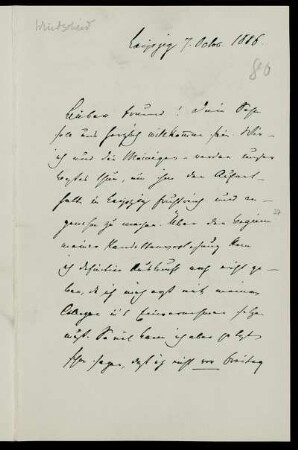 Windscheid
Leipzig 7. Octob. 1886.
Lieber Freund! Dein Sohn
soll uns herzlich willkommen sein. Wir –
ich und die Meinigen – werden unser
Bestes thun, um ihm den Aufent-
halt in Leipzig fruchtbar und an-
genehm zu machen. Über den Beginn
meiner Pandektenvorlesung kann
ich definitive Auskunft noch nicht ge-
ben, da ich mich erst mit meinen
Collegen in's Einvernehmen setzen
muß. So viel kann ich aber jetzt
schon sagen, daß ich nicht vor Freitag